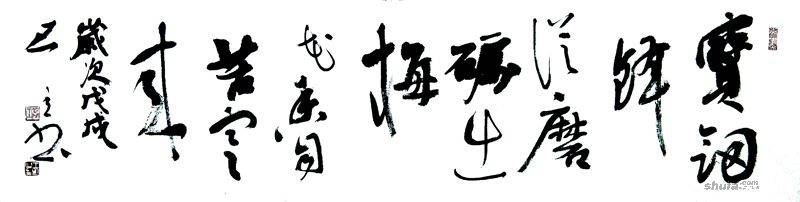 寶劍
鋒
從磨
礪出
梅
花香自
苦寒
來
歲次戊戌
立書
shufa.com